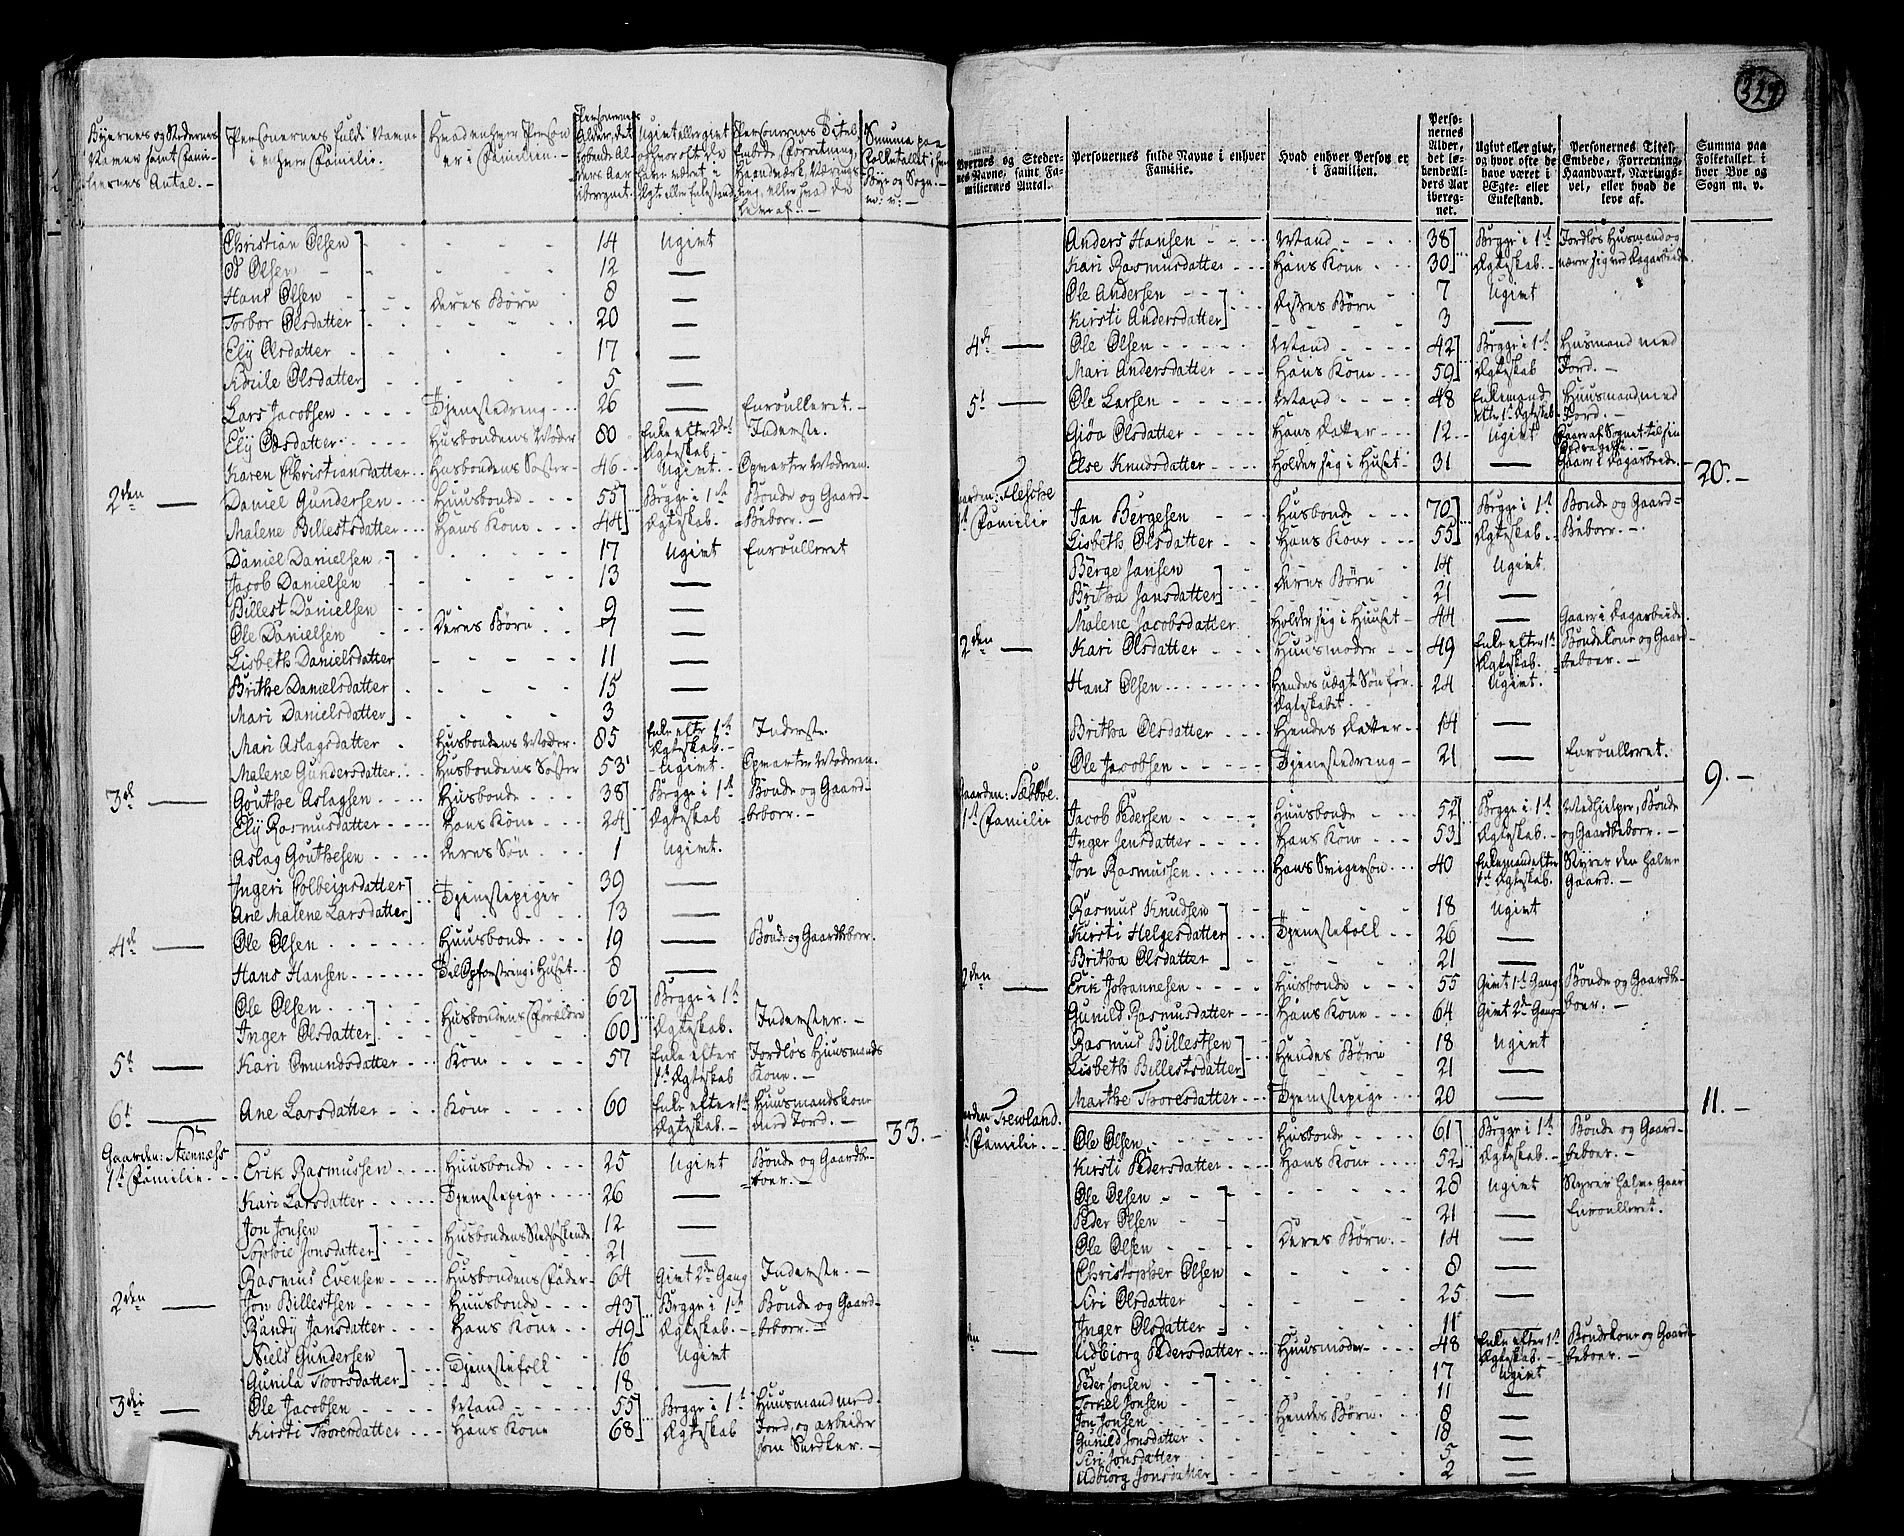 324
Byernes og Stædernes Navne samt Familiernes Antal.
Personernes fulde Navne i enhver Familie.
Hvad enhver Person er i Familien.
Personernes Alder, det løbende Alders Aar iberegnet.
Ugivt eller givt og hvor ofte de have været i Ægte eller Enkestand
Personernes Titel, Embede, Forretning, Haandværk, Nærings-vej, eller hvad de leve af.
Summa paa Folketallet i hver Bye og Sogn m. v.
Christian Olsen 14 Ugivt
Ol Olsen 12 —
Hans Olsen deres Børn 8 —
Torbor Olsdatter 20 —
Ely Olsdatter 17 —
Olsdatter 5 —
Lars Jacobsen Tjenestedreng 26 — Enroulleret.
Ely Olsdatter Husbondens Moder 80 Enke efter 2det Ægteskab Inderste.
Karen Christiansdatter Husbondens Søster 46 Ugivt. Opvarter Moderen.
2den — Daniel Gundersen Huusbonde 55 Begge i 1ste Bonde og Gaard-
Malene Billestsdatter Hans Kone 44 Ægteskab. Beboer. —
Daniel Danielsen 17 Ugivt Enroulleret
Jacob Danielsen 13 —
Billest Danielsen 9 —
Ole Danielsen deres Børn 7 —
Lisbeth Danielsdatter 11 —
Brithe Danielsdatter 15 —
Mari Danielsdatter 3 —
Mari Aslagsdatter Husbondens Moder 85 Enke efter 1ste Ægteskab. Inderste.
Malene Gundersdatter Husbondens Søster 53 Ugivt. Opvarter Moderen.
3de — Gouthe Aslagsen Husbonde 38 Begge i 1ste Bonde og Gaard-
Ely Rasmusdatter Hans Kone 24 Ægteskab beboer. —
Aslag Gouthesen deres Søn 1 Ugivt.
Ingeri Colbeinsdatter Tjenestepiger 39 —
Ane Malene Larsdatter 13 —
4de — Ole Olsen Huusbonde 19 — Bonde og Gaardbeboer.
Hans Hansen Til Opfostring i Huset 8 —
Ole Olsen Husbondens Forældre 62 Begge i 1ste
Inger Olsdatter 60 Ægteskab. Inderster. —
5te — Kari Omundsdatter Kone 57 Enke efter 1ste Ægteskab Jordløs Huusmands Kone. —
6te — Ane Larsdatter Kone 60 Enke efter 1ste Ægteskab. Huusmandskone med Jord. — 33. —
Gaarden: Stennæss
1ste Familie. Erik Rasmussen Huusbonde 25 Ugivt Bonde og Gaardbeboer. —
Kari Larsdatter Tjenestepige 26 —
Jon Jonsen Husbondens Sødskende 12 —
Sophie Jonsdatter 21 —
Rasmus Evensen Husbondens Fader 64 Givt 2den Gang Inderste. —
2den — Jon Billestsen Huusbonde 43 Begge i 1ste Bonde og Gaard-
Randy Jansdatter Hans Kone 49 Ægteskab. beboer. —
Niels Gundersen Tjenestefolk 16 Ugivt
Gunila Thorsdatter 18 —
3die — Ole Jacobsen Mand 55 Begge i 1ste Huusmand med
Kirsti Thoresdatter Hans Kone 68 Ægteskab Jord, og arbeider som Snedker. —
Byernes og Steder-nes Navne, samt Fa-miliernes Antal.
Personernes fulde Navne i enhver Familie.
Hvad enhver Person er i Familien.
Perso-nernes Alder, det lø-bende Al-ders Aar iberegnet.
Ugivt eller givt, og hvor ofte de have været i Ægte- eller Enkestand.
Personernes Titel, Embede, Forretning, Haandværk, Nærings-vei, eller hvad de leve af.
Summa paa Folketallet i hver Bye og Sogn m. v.
Anders Hansen Mand 38 Begge i 1ste Jordløs Husmand og
Kari Rasmusdatter Hans Kone 30 Ægteskab. nærer sig ved Dagarbeide
Ole Andersen disses Børn 7 Ugivt
Kirsti Andersdatter 3 —
4de — Ole Olsen Mand 42 Begge i 1ste Husmand med
Mari Andersdatter Hans Kone 59 Ægteskab Jord. —
5te — Ole Larsen Mand 48 Enkemand efter 1ste Ægteskab Huusmand med Jord. —
Giøa Olsdatter Hans Datter 12 Ugivt Faar af Sognet til sin Opdragelse. —
Else Knudsdatter Holder sig i Huset 31 — Gaar i Dagarbeide. 20. —
Gaarden: Flesche
1ste Familie Jan Bergesen Husbonde 70 Begge i 1ste Bonde og Gaard-
Lisbeth Olsdatter Hans Kone 55 Ægteskab. Beboer. —
Berge Jansen deres Børn 14 Ugivt.
Britha Jansdatter 21 —
Malene Jacobsdatter Holder sig i Huuset 44 — Gaar i Dagarbeide.
2den — Kari Olsdatter Huusmoder 49 Enke efter 1ste Ægteskab. Bondekone og Gaard-beboer. —
Hans Olsen Hendes uægte Søn før Ægteskabet 24 Ugivt.
Britha Olsdatter Hendes Datter 14 —
Ole Jacobsen Tjenestedreng 21 — Enroulleret. 9. —
Gaarden: Sæbbøe.
1ste Familie Jacob Pedersen Huusbonde 52 Begge i 1ste Medhielper, Bonde
Inger Jensdatter Hans Kone 53 Ægteskab. og Gaardbeboer. —
Jon Rasmussen Hans Svigersøn 40 Enkemand efter 1ste Ægteskab. Styrer den halve Gaard. —
Rasmus Knudsen 18 Ugivt
Kirsti Helgesdatter Tjenestefolk 26 —
Britha Olsdatter 21 —
2den — Erik Johannesen Husbonde 55 Givt 1ste Gang Bonde og Gaardbe-
Gunild Rasmusdatter Hans Kone 64 Givt 2den Gang boer. —
Rasmus Billestsen Hendes Børn 18 Ugivt
Lisbeth Billestsdatter 21 —
Marthe Thoresdatter Tjenestepige 20 — 11. —
Gaarden Trewland.
1ste Familie. Ole Olsen Husbonde 61 Begge i 1ste Bonde og Gaard-
Kirsti Pedersdatter Hans Kone 52 Ægteskab. beboer. —
Ole Olsen 28 Ugivt Styrer halve Gaar
Peder Olsen 21 — Enroulleret.
Ole Olsen Deres Børn 14 —
Christopher Olsen 8 —
Siri Olsdatter 25 —
Inger Olsdatter 11 —
2den — Udbiorg Pedersdatter Huusmoder 48 Enke efter 1ste Ægteskab. Bondekone og Gaard-beboer. —
Peder Jonsen 17 Ugivt
Torkel Jonsen 11 —
Jon Jonsen Hendes Børn 8 —
Gunild Jonsdatter 18 —
Siri Jonsdatter 5 —
Udbiorg Jonsdatter 2 —